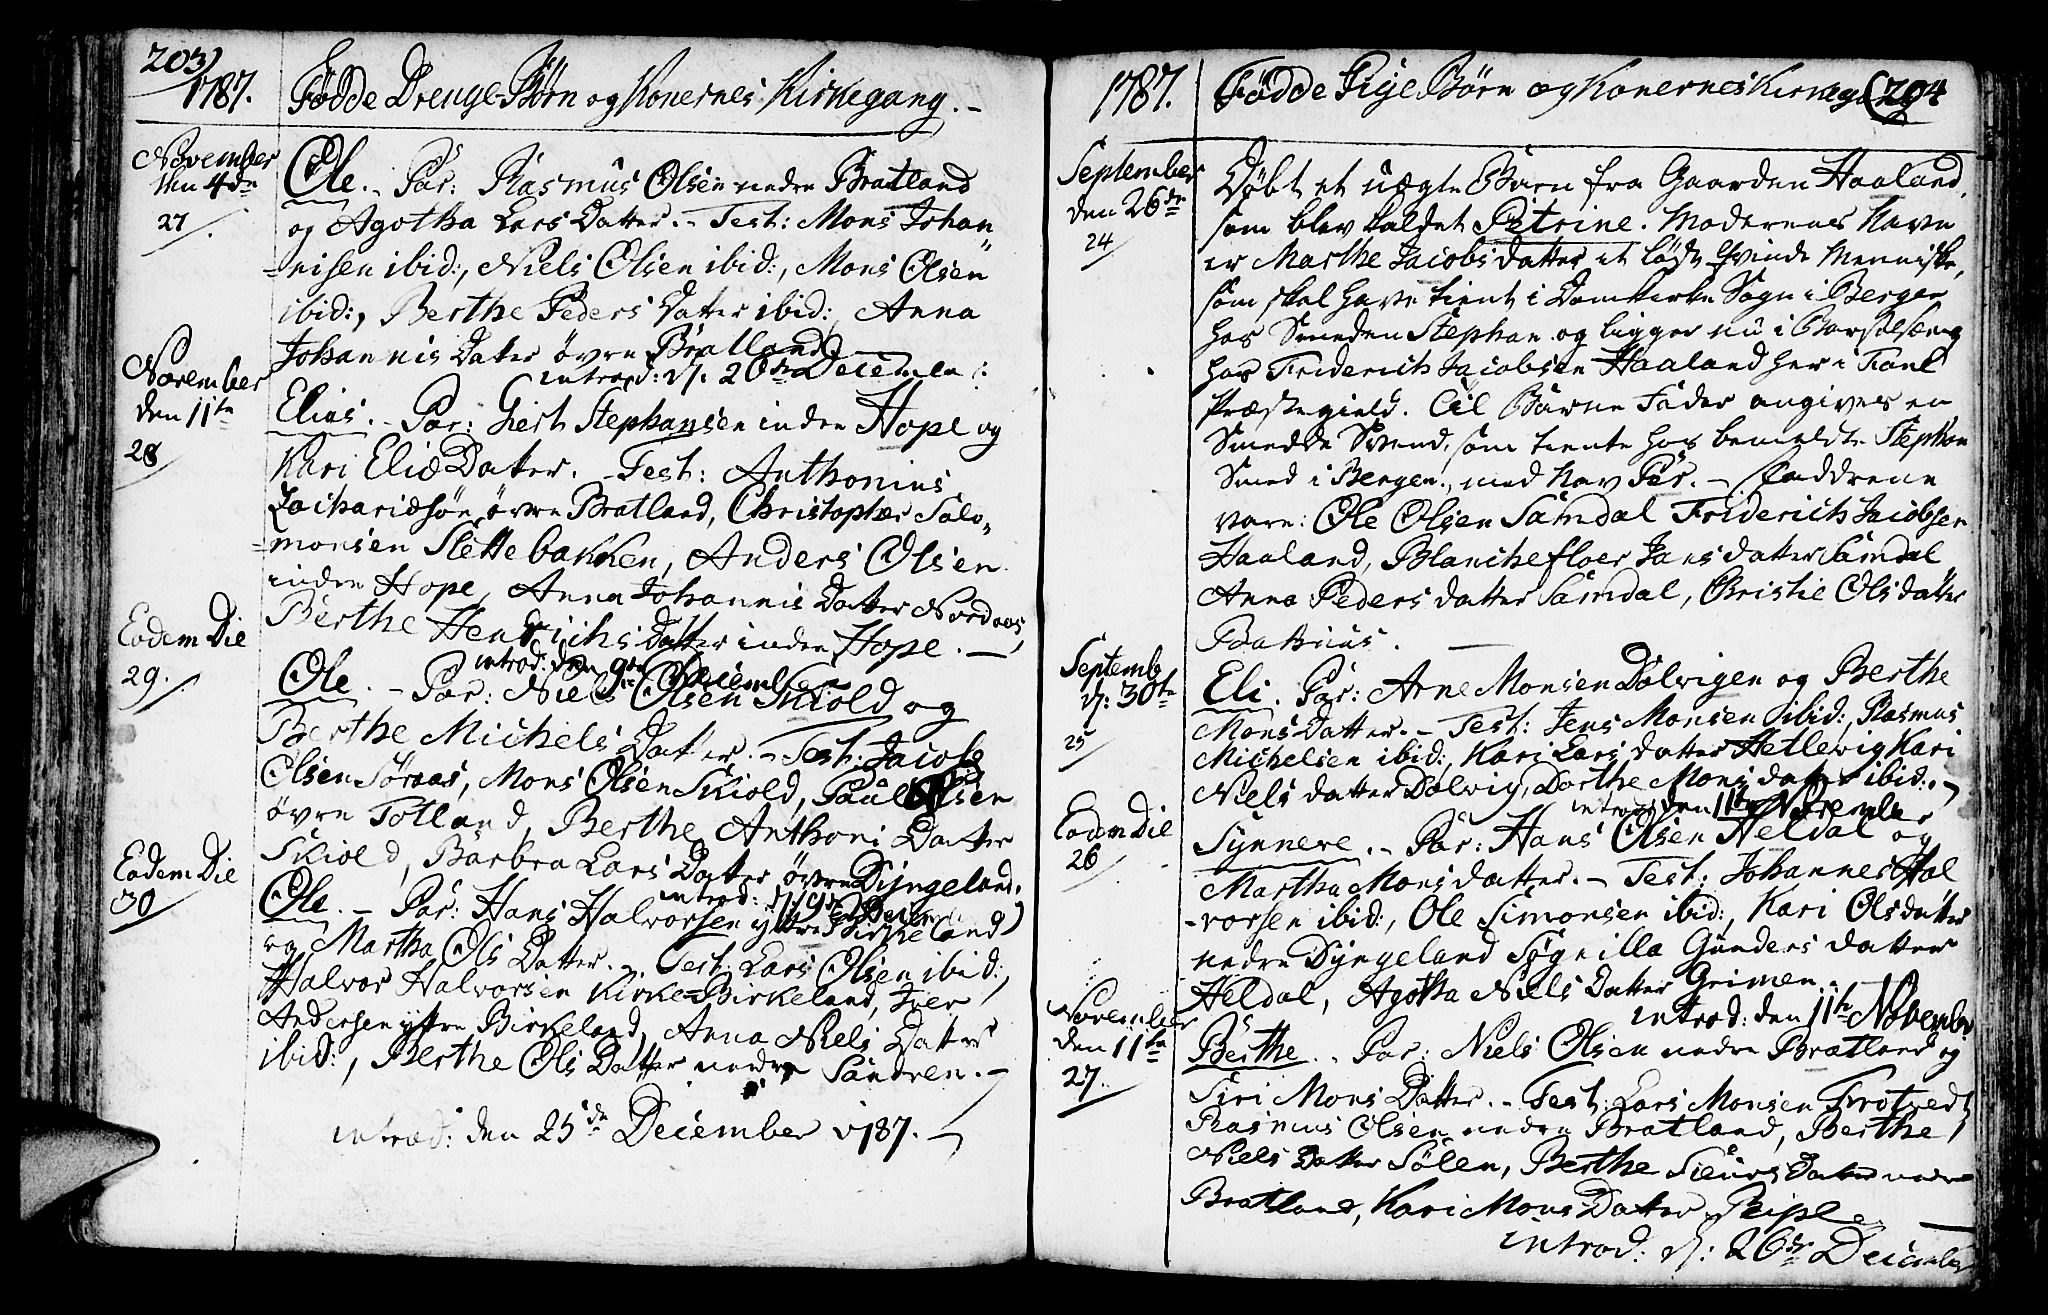 203)
1787. Födde Drenge Börn og Konernes Kirkegang. -
November
den 4de
27
Ole. - Par: Rasmus Olsen nedre Bratland
og Agotha Lars Datter. - Test: Mons Johan
=nisen ibid:, Niels Olsen ibid:, Mons Olsen
ibid:, Berthe Peders Datter ibid:, Anna
Johannis Datter övre Bratland.
introd: d: 26de December:
November
den 11te
28
Elias. - Par: Giert Stephansen indre Hope og
Kari Eliæ Datter. - Test: Anthonius
Zachariæsön övre Bratland, Christopher Salo=
=monsen Slettebakken, Anders Olsen
indre Hope, Anna Johannis Datter Nordaas,
Berthe Hendrichs Datter indre Hope. -
introd: den 9de December
Eodem Die
29.
Ole. - Par: Niels Olsen Skiold og
Berthe Michels Datter. - Test: Jacob
Olsen Söraas, Mons Olsen Skiold, Paul Olsen
övre Totland, Berthe Anthoni Datter
Skiold, Barbra Lars Datter övre Dyngeland.
introd: d: 9de Decem
Eodem Die
30
Ole. - Par: Hans Halvorsen yttre Birkeland
og Martha Ols Datter. - Test: Lars Olsen ibid:,
Halvor Halvorsen Kirke-Birkeland, Iver
Andersen yttre Birkeland, Anna Niels Datter
ibid:, Berthe Ols Datter nedre Sandven. -
introd: den 25de December 1787. -
1787. Födde Pige Börn og Konernes Kirkegang (204
September
den 26de
24
Döbt et uægte Barn fra Gaarden Haaland,
som blev kaldet Petrine. Moderens Navn
er Marthe Jacobs datter et lödt Qvinde Menniske,
som skal have tient i Domkirke Sogn i Bergen
hos Smeden Stephan og ligger nu i Barselseng
hos Friderich Jacobsen Haaland her i Fane
Præstegield. Til Barne Fader angives en
Smedde Svend, som tiente hos bemeldte Stephan
Smed i Bergen, med Nav Per. - Faddrene
vare: Ole Olsen Samdal Friderich Jacobsen
Haaland, Blanchefloer Jans datter Samdal
Anna Peders datter Samdal, Christie Ols datter
Septemb
d: 30te
25
Eli. Par: Arne Monsen Dolvigen og Berthe
Mons Datter. - Test: Jens Monsen ibid:, Rasmus
Michelsen ibid:, Kari Lars datter Hetlevig Kari
Niels datter Dolvig, Dorthe Mons datter ibid:. -
introd: den 11te Novembr
Eodem Die
26
Synneve. - Par: Hans Olsen Heldal og
Martha Mons datter. - Test: Johannes Hal
-vorsen ibid:, Ole Simonsen ibid:, Kari Ols datter
nedre Dyngeland Sygnilla Gunders datter
Heldal, Agotha Niels Datter Grimen. -
introd: den 11te Novembr
November
den 11te
27.
Berthe. - Par: Niels Olsen nedre Bratland og
Siri Mons Datter. - Test: Lars Monsen Trotvedt
Rasmus Olsen nedre Bratland, Berthe
Niels Datter Sölen, Berthe Siurs Datter nedre
Bratland, Kari Mons Datter Riple. -
introd: d: 26de December